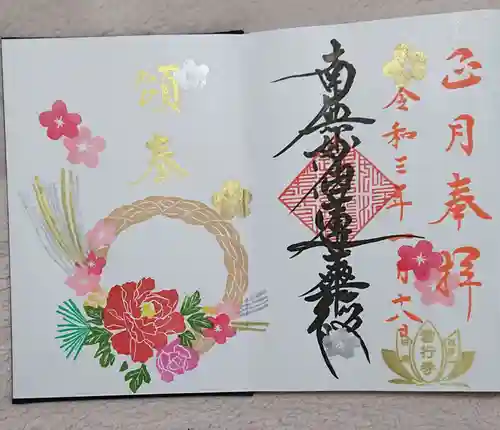 正月奉拝
令和三年一月十六日
南無妙法蓮華経
頌春